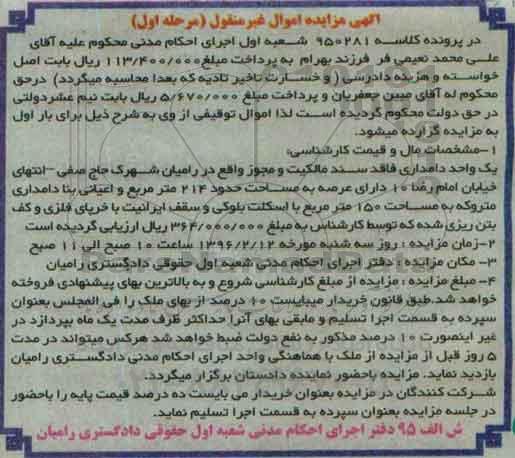 آگهی مزایده اموال غیرمنقول (مرحله اول)
در پرونده کلاسه ۹۵۰۲۸۱ شعبه اول اجرای احکام مدنی محکوم علیه آقای
علی محمد نعیمی فر فرزند بهرام به پرداخت مبلغ ۱۱۳/۴۰۰/۰۰۰ ریال بابت اصل
خواسته و هزینه دادرسی ( و خسارت تاخیر تادیه که بعدا محاسبه میگردد) درحق
محکوم له آقای مبین جعفریان و پرداخت مبلغ ۵/۶۷۰/۰۰۰ ریال بابت نیم عشردولتی
در حق دولت محکوم گردیده است لذا اموال توقیفی از وی به شرح ذیل برای بار اول
به مزایده گزارده میشود.
۱-مشخصات مال و قیمت کارشناسی:
یک واحد دامداری فاقد سند مالکیت و مجوز واقع در رامیان شهرک حاج صفی -انتهای
خیابان امام رضا ۱۰ دارای عرصه به مساحت حدود ۲۱۴ متر مربع و اعیانی بنا دامداری
متروکه به مساحت ۱۵۰ متر مربع با اسکلت بلوکی و سقف ایرانیت با خرپای فلزی و کف
بتن ریزی شده که توسط کارشناس به مبلغ ۳۶۴/۰۰۰/۰۰۰ ریال ارزیابی گردیده است
۲-زمان مزایده : روز سه شنبه مورخه ۱۳۹۶/۲/۱۲ ساعت ۱۰ صبح الی ۱۱ صبح
۳- مکان مزایده : دفتر اجرای احکام مدنی شعبه اول حقوقی دادگستری رامیان
۴- مبلغ مزایده : مزایده از مبلغ کارشناسی شروع و به بالاترین بهای پیشنهادی فروخته
خواهد شد.طبق قانون خریدار میبایست ۱۰ درصد از بهای ملک را فی المجلس بعنوان
سپرده به قسمت اجرا تسلیم و مابقی بهای آنرا حداکثر ظرف مدت یک ماه بپردازد در
غیر اینصورت ۱۰ درصد مذکور به نفع دولت ضبط خواهد شد هرکس میتواند در مدت
۵ روز قبل از مزایده از ملک با هماهنگی واحد اجرای احکام مدنی دادگستری رامیان
بازدید نماید. مزایده باحضور نماینده دادستان برگزار میگردد.
شرکت کنندگان در مزایده بعنوان خریدار می بایست ده درصد قیمت پایه را باحضور
در جلسه مزایده بعنوان سپرده به قسمت اجرا تسلیم نماید.
ش الف ۹۵ دفتر اجرای احکام مدنی شعبه اول حقوقی دادگستری رامیان